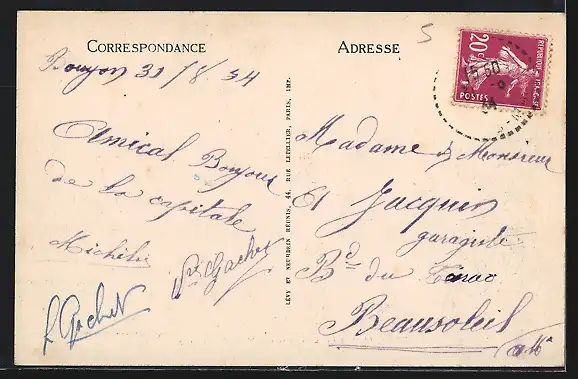 CORRESPONDANCE
ADRESSE
5
Bouyon 31/8.34
REPUBLIQUE FRANÇAISE
20c
POSTES
Amical Bonjour
de la capitale
Gachet
L Gachet
LÉVY ET NEURDEIN RÉUNIS, 44, RUE LETELLIER, PARIS, IMP.
Madame & Monsieur
Jacquin
garagiste
Bd du
Beausoleil
AM